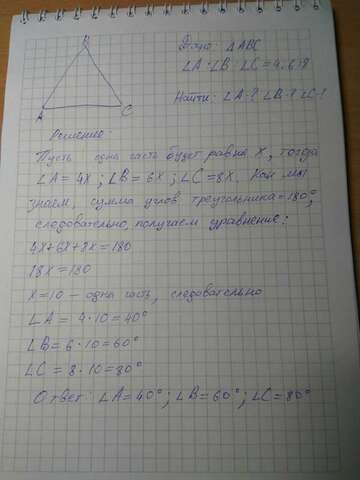 B
A
C
Дано: △ABC
∠A:∠B:∠C=4:6:8
Найти: ∠A-? ∠B-? ∠C-?
Решение:
Пусть одна часть будет равна x, тогда
∠A=4x; ∠B=6x; ∠C=8x. Как мы
знаем, сумма углов треугольника=180°;
следовательно, получаем уравнение:
4x+6x+8x=180
18x=180
x=10 - одна часть, следовательно
∠A= 4·10=40°
∠B=6·10=60°
∠C= 8·10=80°
Ответ: ∠A=40°; ∠B=60°; ∠C=80°